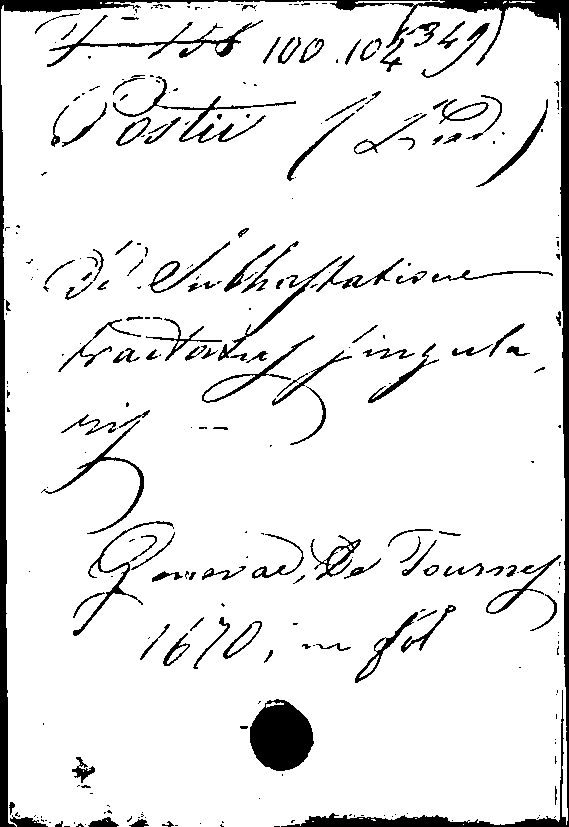 F. 158 100.104
Postii (Lud.)
De Subhastatione
tractatus singula,
ris --
Genevae, De Tournes
1670, in fol